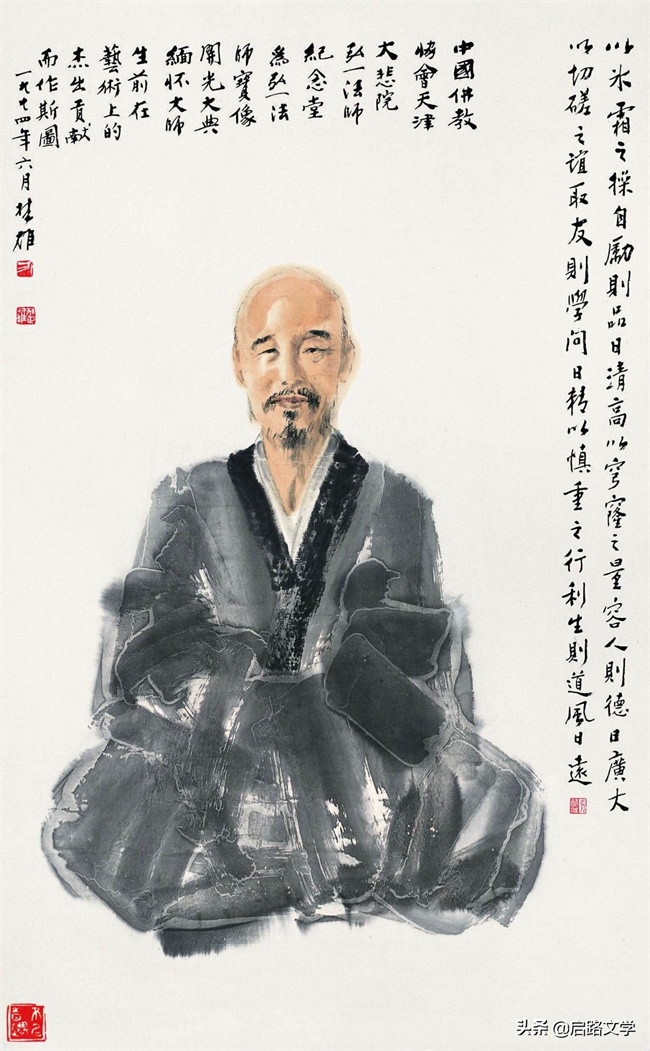 以冰霜之操自勵則品日清高以穹窿之量容人則德日廣大
以切磋之誼取友則學問日精以慎重之行利生則道風日遠
中國佛教
恊會天津
大悲院
弘一法師
紀念堂
為弘一法
師寶像
開光大典
緬懷大師
生前在
藝術上的
杰出貢献
而作斯圖
一九九四年六月
头条 @启路文学